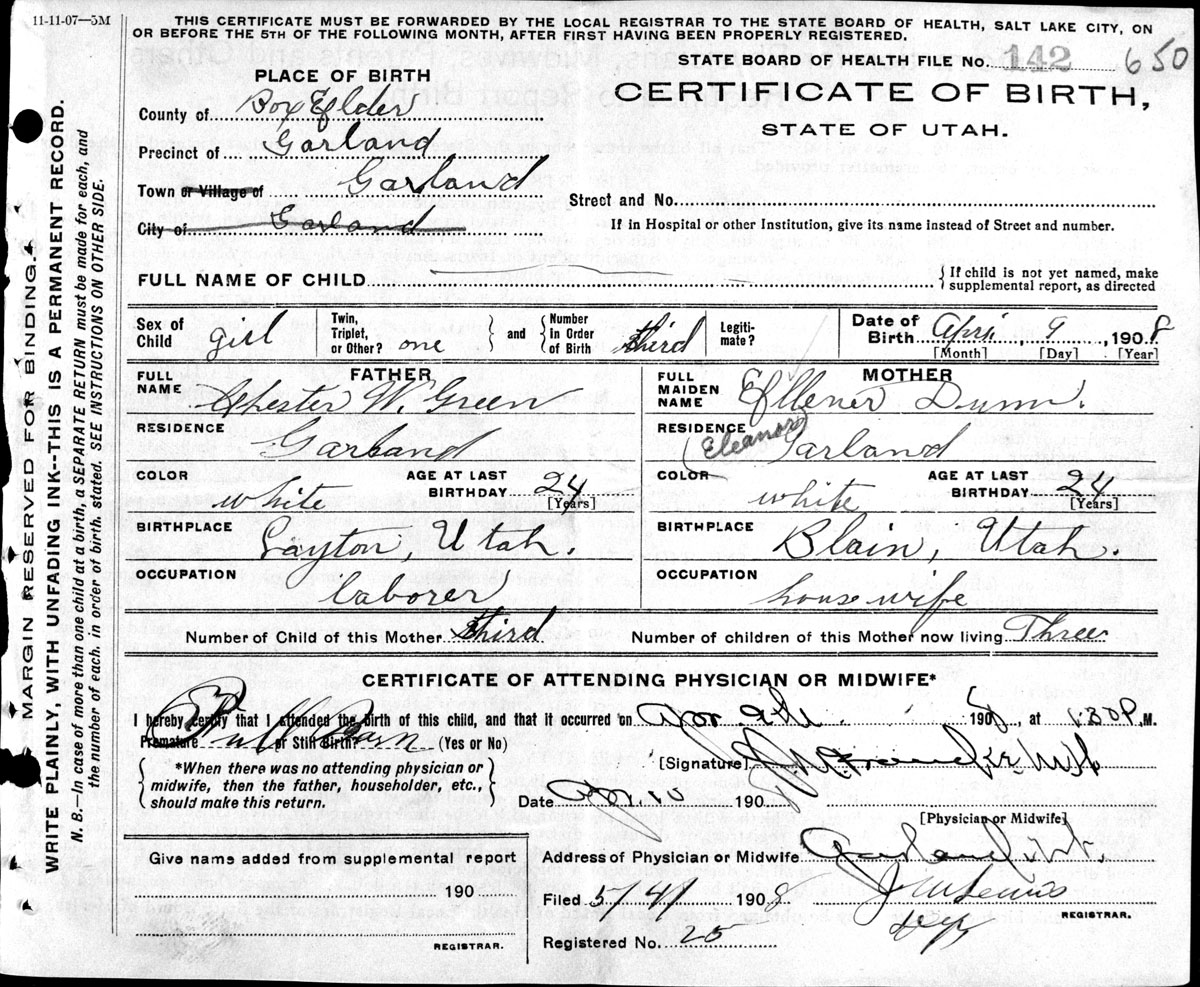 11-11-07—5M
THIS CERTIFICATE MUST BE FORWARDED BY THE LOCAL REGISTRAR TO THE STATE BOARD OF HEALTH, SALT LAKE CITY, ON
OR BEFORE THE 5TH OF THE FOLLOWING MONTH, AFTER FIRST HAVING BEEN PROPERLY REGISTERED.
STATE BOARD OF HEALTH FILE No. 142 650
CERTIFICATE OF BIRTH,
STATE OF UTAH.
PLACE OF BIRTH
County of Box Elder
Precinct of Garland
Town or Village of Garland
City of Garland
Street and No.
If in Hospital or other Institution, give its name instead of Street and number.
FULL NAME OF CHILD
{If child is not yet named, make
supplemental report, as directed
Sex of Child girl
Twin, Triplet, or Other? one
and
Number in Order of Birth third
Legiti-mate?
Date of Birth April, 9, 1908
[Month] [Day] [Year]
FATHER
FULL NAME Chester W. Green
RESIDENCE Garland
COLOR white
AGE AT LAST BIRTHDAY 24
[Years]
BIRTHPLACE Layton, Utah.
OCCUPATION laborer
MOTHER
FULL MAIDEN NAME Ellener Dunn.
(Eleanor)
RESIDENCE Garland
COLOR white
AGE AT LAST BIRTHDAY 24
[Years]
BIRTHPLACE Blain, Utah.
OCCUPATION house wife
Number of Child of this Mother third
Number of children of this Mother now living Three
CERTIFICATE OF ATTENDING PHYSICIAN OR MIDWIFE*
I hereby certify that I attended the birth of this child, and that it occurred on Apr 9th, 1908, at 1.30 P. M.
Premature or Still Birth? (Yes or No)
Full Born
*When there was no attending physician or
midwife, then the father, householder, etc.,
should make this return.
[Signature]
Date Apr. 10 1908
[Physician or Midwife]
Give name added from supplemental report
190
REGISTRAR.
Address of Physician or Midwife Garland Ut.
Filed 5/4/ 1908
J W Lewis
REGISTRAR.
Dep
Registered No. 25
MARGIN RESERVED FOR BINDING.
WRITE PLAINLY, WITH UNFADING INK--THIS IS A PERMANENT RECORD.
N. B.—In case of more than one child at a birth, a SEPARATE RETURN must be made for each, and
the number of each, in order of birth, stated. SEE INSTRUCTIONS ON OTHER SIDE.